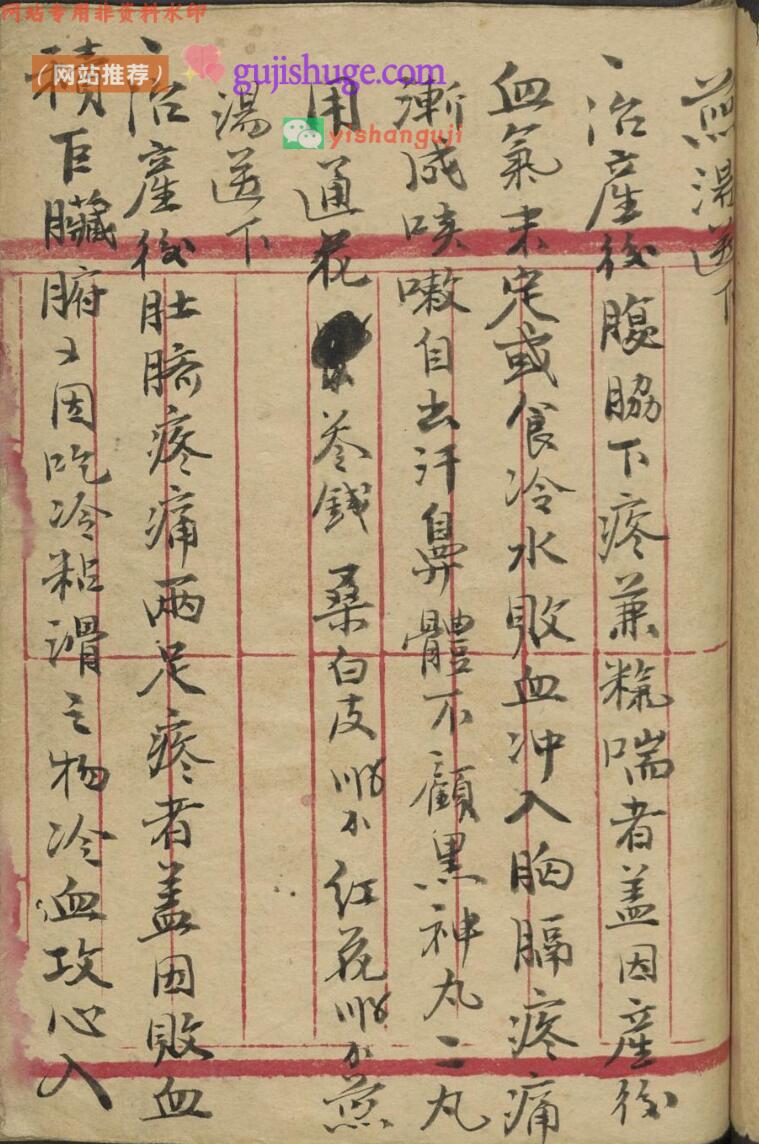 网站专用非资料水印
（网站推荐）
gujishuge.com
yishanguji
煎湯送下
、治産後腹脇下疼兼粮喘者盖因産後
血氣未定或食冷水敗血冲入胸膈疼痛
漸成咳嗽自出汗鼻體不顧黑神丸二丸
用通花 叁錢 桑白皮 红花 煎
湯送下
、治産後肚臍疼痛兩足疼者盖因敗血
積巨臟腑又因吃冷粗滑之物冷血攻心入